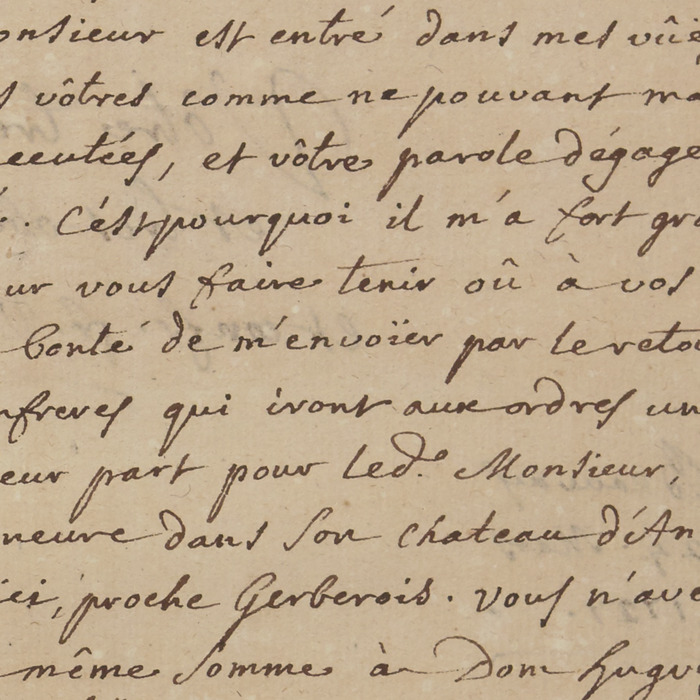 onsieur est entré dans mes vûë
s vôtres comme ne pouvant ma
ecutées, et vôtre parole dégage
. C'est pourquoi il m'a fort gra
ur vous faire tenir oû à vos
bonté de m'envoïer par le reto
nfreres qui iront aux ordres un
eur part pour led.t Monsieur,
meure dans son chateau d'An
ici, proche Gerberois. vous n'ave
même somme à Dom hugu